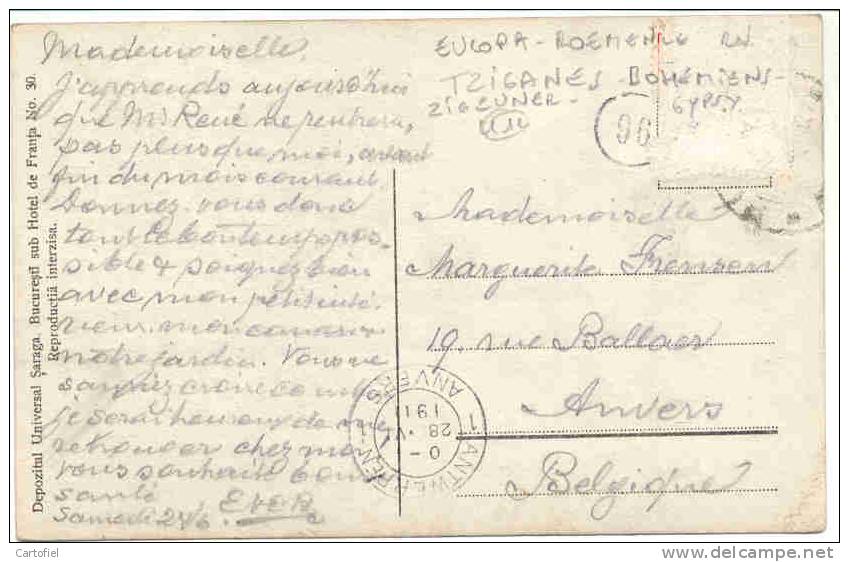 Depozitul Universal Șaraga, București sub Hotel de Franța No. 30.
Reproducția interzisa.
Mademoiselle,
J'apprends aujourd'hui
que Mr René ne rentrera,
pas plus que moi, avant
fin du mois courant.
Donnez-vous donc
tout le bon temps pos-
sible & soignez bien
avec mon petit inté-
rieur, mon canari &
notre jardin. Vous ne
sauriez croire combien
je serai heureux de me
retrouver chez moi
vous souhaite bonne
santé
Samedi 24/6.
EUROPA - ROEMENIE
TZIGANES - BOHEMIENS -
ZIGEUNER - GYPSY
96
Mademoiselle
Marguerite
19, rue Ballaer
Anvers
Belgique
ANTWERPEN 1
0 -
28 · VI
1911
1 ANVERS
Cartofiel
www.delcampe.net